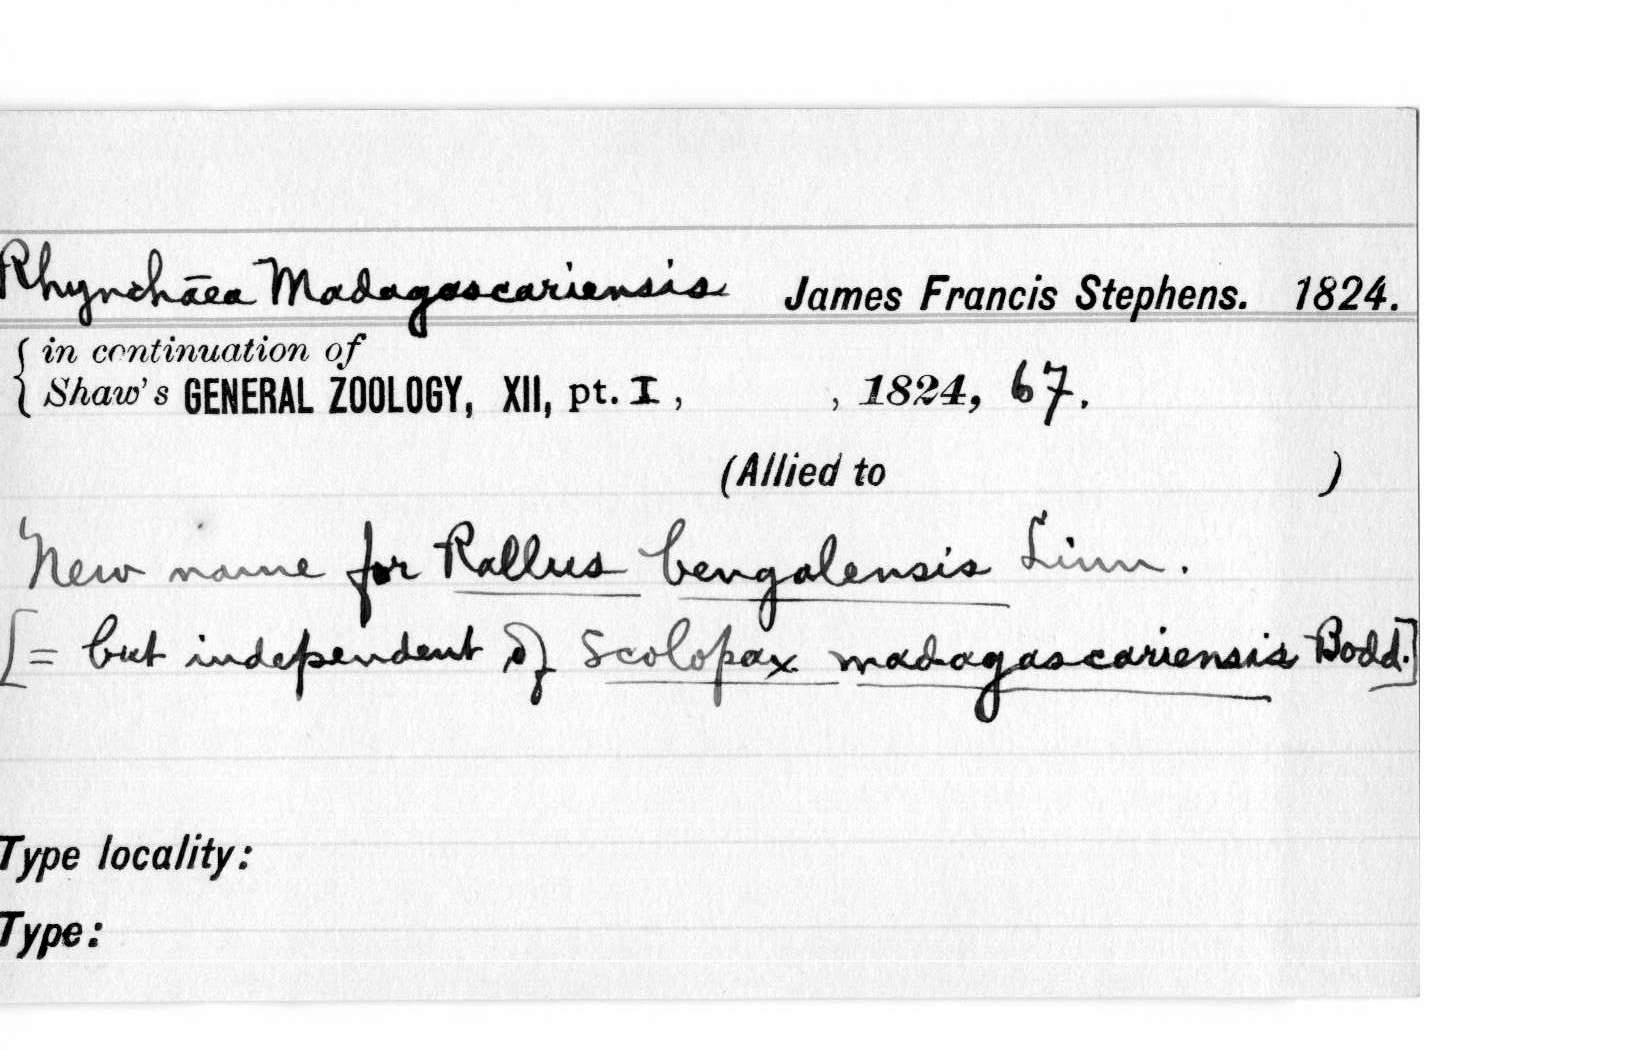 Rhynchāea Madagascariensis James Francis Stephens. 1824.
in continuation of
Shaw's GENERAL ZOOLOGY, XII, pt. I, , 1824, 67.
(Allied to )
New name for Rallus bengalensis Linn.
[= but independent of Scolopax madagascariensis Bodd.]
Type locality:
Type: